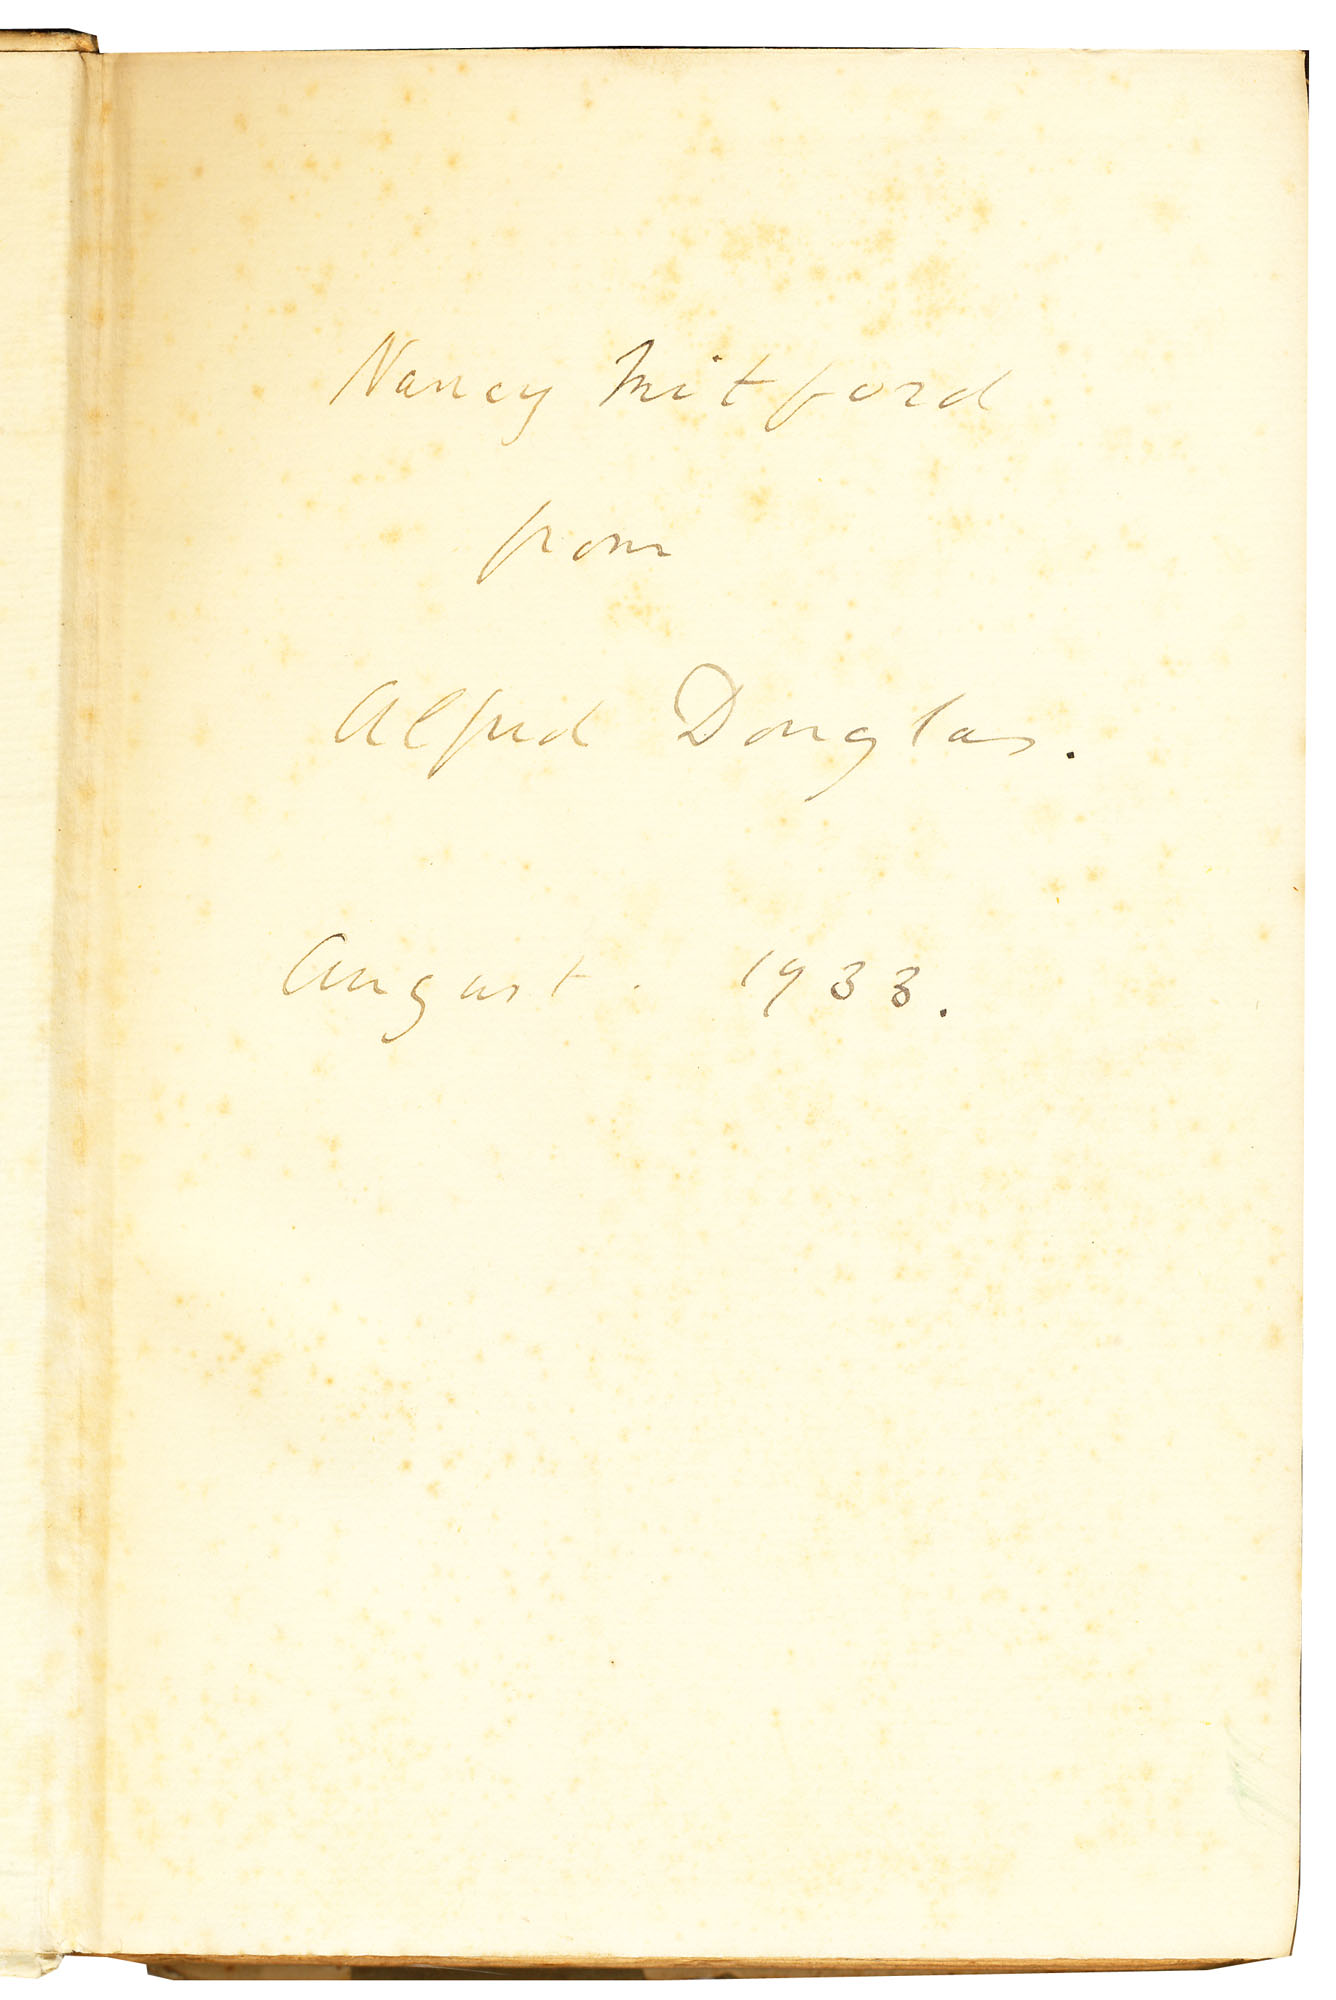 Nancy Mitford
from
Alfred Douglas.
August. 1933.